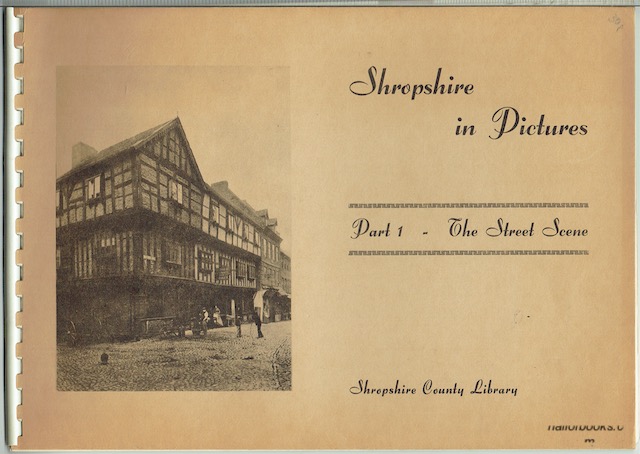 Shropshire
in Pictures
Part 1 - The Street Scene
Shropshire County Library